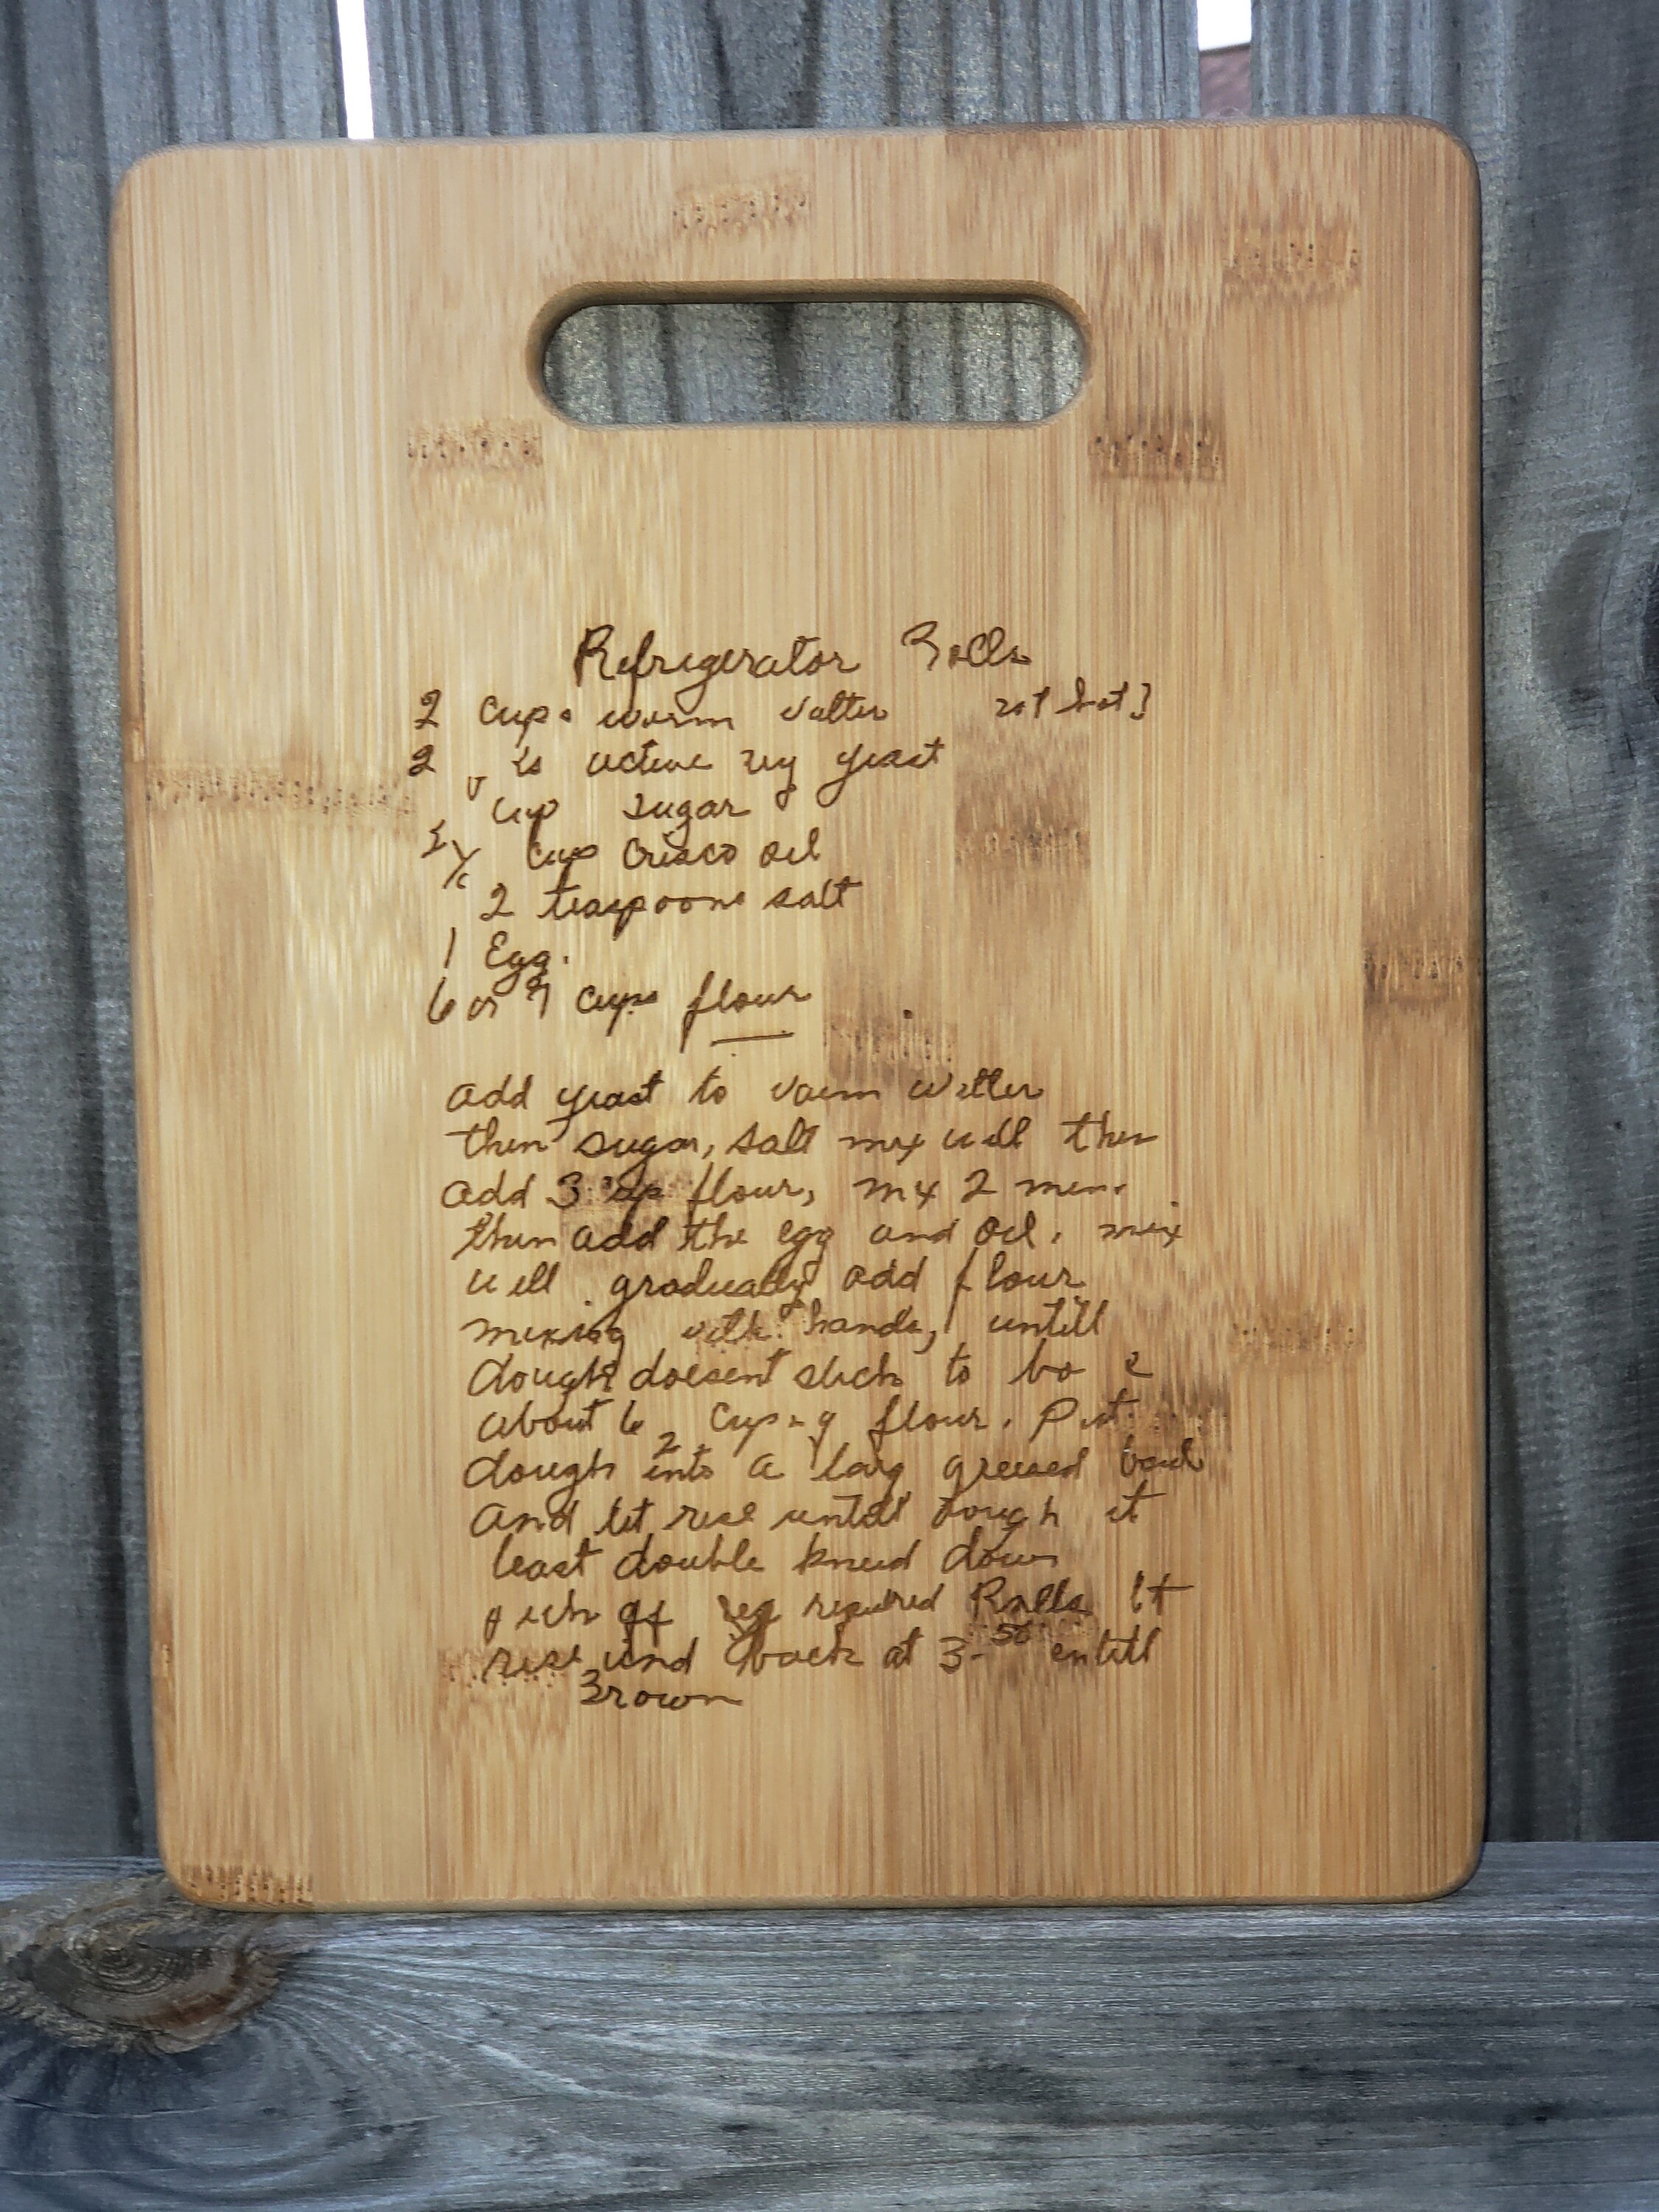 Refrigerator Rolls
2 cups warm watter not hot
2 active yeast
cup sugar
cup Crisco oil
2 teaspoons salt
1 Egg.
6 or 7 cups flour
add yeast to warm watter
then sugar, salt mix well then
add 3 cup flour, mix 2 min.
then add the egg and oil. mix
well gradually add flour
mixing with hands, untill
dough doesent stick to
about 6 cups flour. Put
dough into a larg greased bowl
and let rise untill dough
least double knead down
Rolls
rise and back at 350 untill
Brown